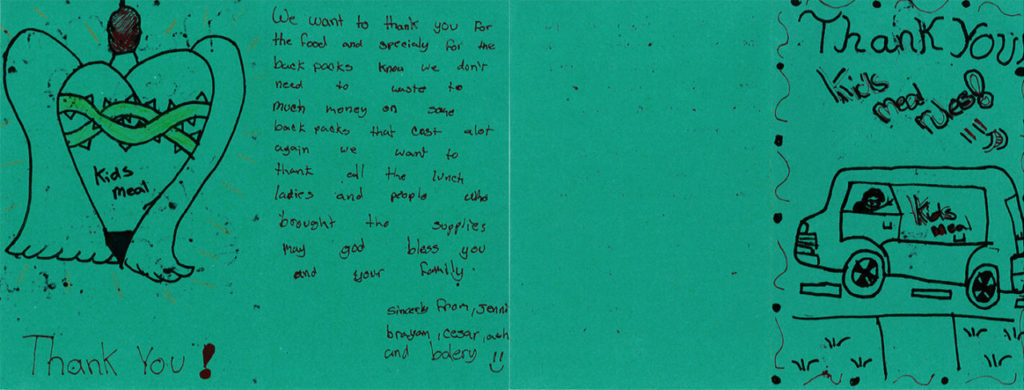 Kids
meal
Thank You!
We want to thank you for
the food and specialy for the
back packs know we don't
need to waste to
much money on some
back packs that cost alot
again we want to
thank all the lunch
ladies and people who
brought the supplies
may god bless you
and your family.
from, Jenni
brayam, cesar,
and bolery
Thank You!
Kids
meal
rules!
Kids
Meal